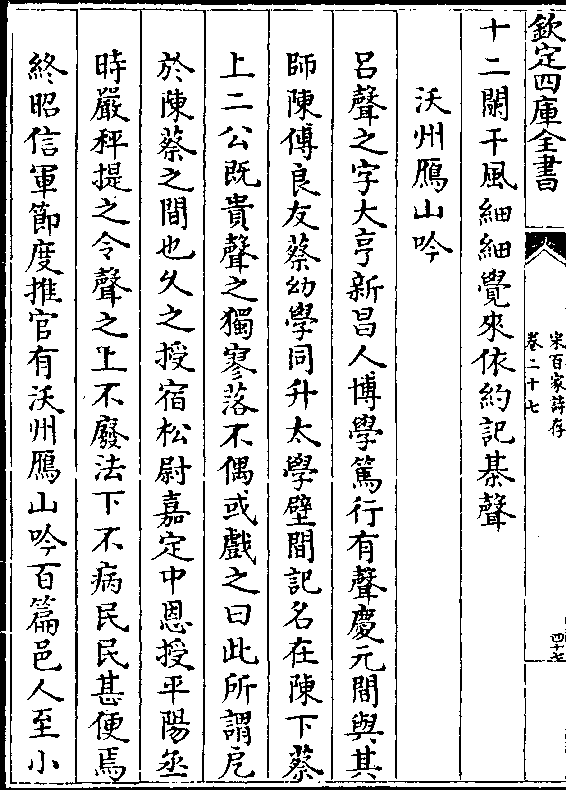 欽定四庫全書
宋百家詩存
卷二十七
四十七
十二闌干風細細覺來依約記棊聲
沃州鴈山吟
呂聲之字大亨新昌人博學篤行有聲慶元間與其
師陳傅良友蔡幼學同升太學壁間記名在陳下蔡
上二公既貴聲之獨寥落不偶或戲之曰此所謂戹
於陳蔡之間也久之授宿松尉嘉定中恩授平陽丞
時嚴秤提之令聲之上不廢法下不病民民甚便焉
終昭信軍節度推官有沃州鴈山吟百篇邑人至小